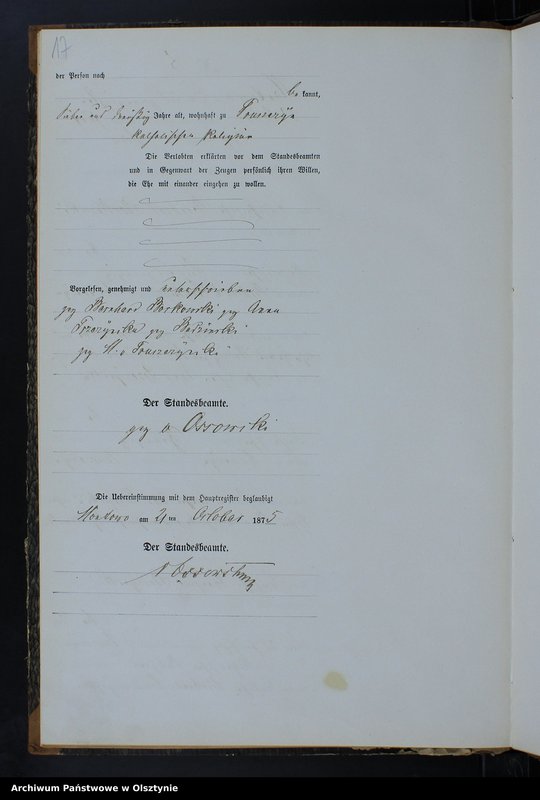 17
der Person nach
be kannt,
Sieben und dreißig Jahre alt, wohnhaft zu
katholischer Religion
Die Verlobten erklärten vor dem Standesbeamten
und in Gegenwart der Zeugen persönlich ihren Willen,
die Ehe mit einander eingehen zu wollen.
Vorgelesen, genehmigt und unterschrieben
gez Bernhard Borkowski gez Anna
gez
gez
Der Standesbeamte.
gez v Ossowski
Die Uebereinstimmung mit dem Hauptregister beglaubigt
am 21 ten October 1875
Der Standesbeamte.
v Ossowski
Archiwum Państwowe w Olsztynie